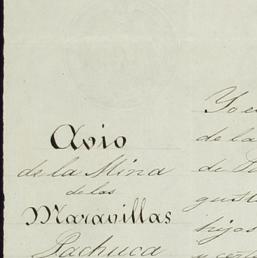 Avio
de la Mina
de las
Maravillas
Pachuca
Yo e
de la
de
gust
hijos
y cer